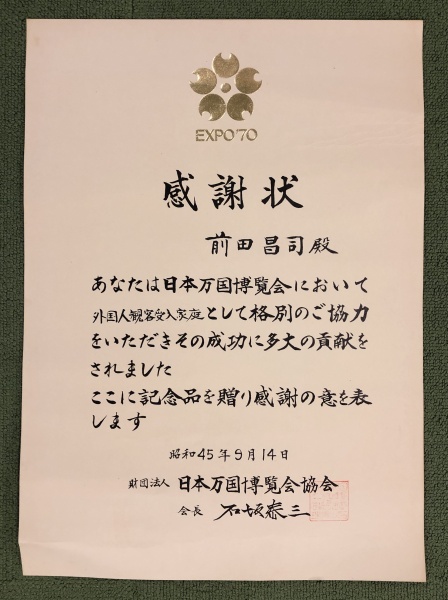 EXPO'70
感謝状
前田昌司殿
あなたは日本万国博覧会において
外国人観客受入家庭として格別のご協力
をいただきその成功に多大の貢献を
されました
ここに記念品を贈り感謝の意を表
します
昭和45年9月14日
財団法人 日本万国博覧会協会
会長 石坂泰三